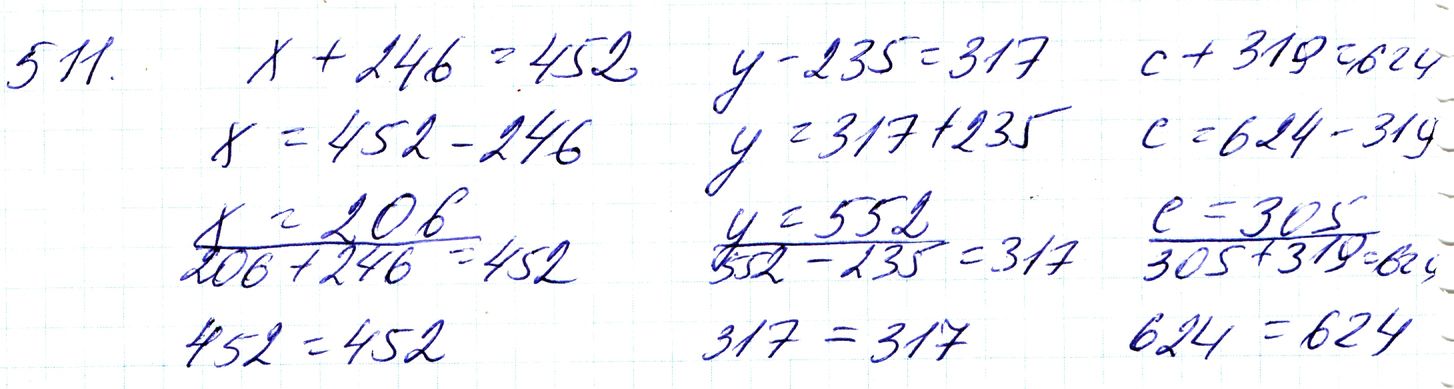 511. x + 246 = 452 y - 235 = 317 c + 319 = 624
x = 452 - 246 y = 317 + 235 c = 624 - 319
x = 206 y = 552 c = 305
206 + 246 = 452 552 - 235 = 317 305 + 319 = 624
452 = 452 317 = 317 624 = 624